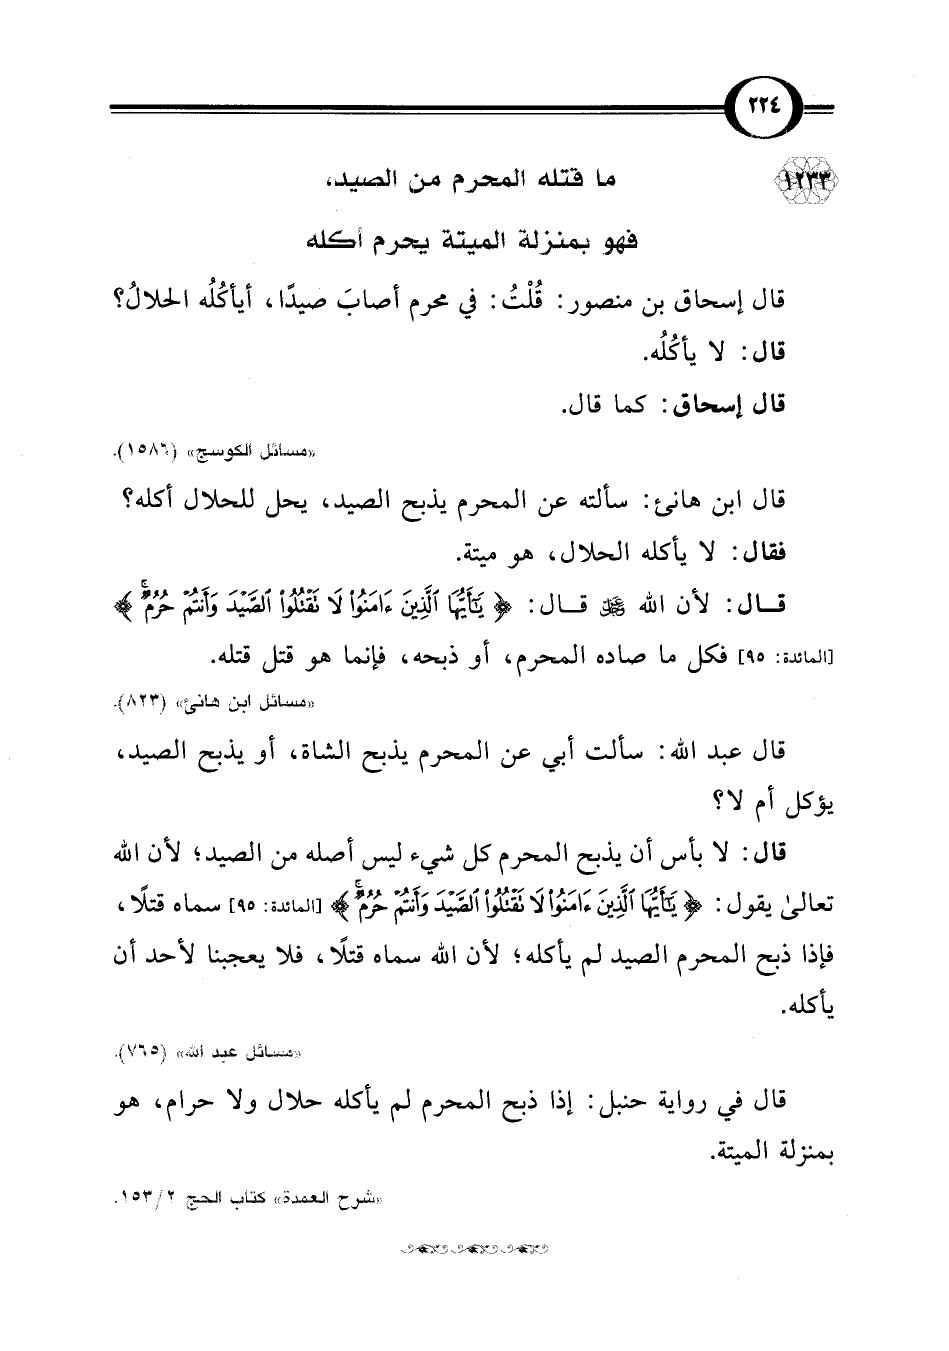 ٢٢٤
١٢٣٣ ما قتله المحرم من الصيد،
فهو بمنزلة الميتة يحرم أكله
قال إسحاق بن منصور: قُلْتُ: في محرم أصابَ صيدًا، أيأكُلُه الحلالُ؟
قال: لا يأكُلُه.
قال إسحاق: كما قال.
«مسائل الكوسج» (١٥٨٦).
قال ابن هانئ: سألته عن المحرم يذبح الصيد، يحل للحلال أكله؟
فقال: لا يأكله الحلال، هو ميتة.
قال: لأن الله ﷺ قال: ﴿ يَٰٓأَيُّهَا ٱلَّذِينَ ءَامَنُوا۟ لَا تَقْتُلُوا۟ ٱلصَّيْدَ وَأَنتُمْ حُرُمٌ ۚ ﴾
[المائدة: ٩٥] فكل ما صاده المحرم، أو ذبحه، فإنما هو قتل قتله.
«مسائل ابن هانئ» (٨٢٣).
قال عبد الله: سألت أبي عن المحرم يذبح الشاة، أو يذبح الصيد،
يؤكل أم لا؟
قال: لا بأس أن يذبح المحرم كل شيء ليس أصله من الصيد؛ لأن الله
تعالىٰ يقول: ﴿ يَٰٓأَيُّهَا ٱلَّذِينَ ءَامَنُوا۟ لَا تَقْتُلُوا۟ ٱلصَّيْدَ وَأَنتُمْ حُرُمٌ ۚ ﴾ [المائدة: ٩٥] سماه قتلًا،
فإذا ذبح المحرم الصيد لم يأكله؛ لأن الله سماه قتلًا، فلا يعجبنا لأحد أن
يأكله.
«مسائل عبد الله» (٧٦٥).
قال في رواية حنبل: إذا ذبح المحرم لم يأكله حلال ولا حرام، هو
بمنزلة الميتة.
«شرح العمدة» كتاب الحج ٢/ ١٥٣.